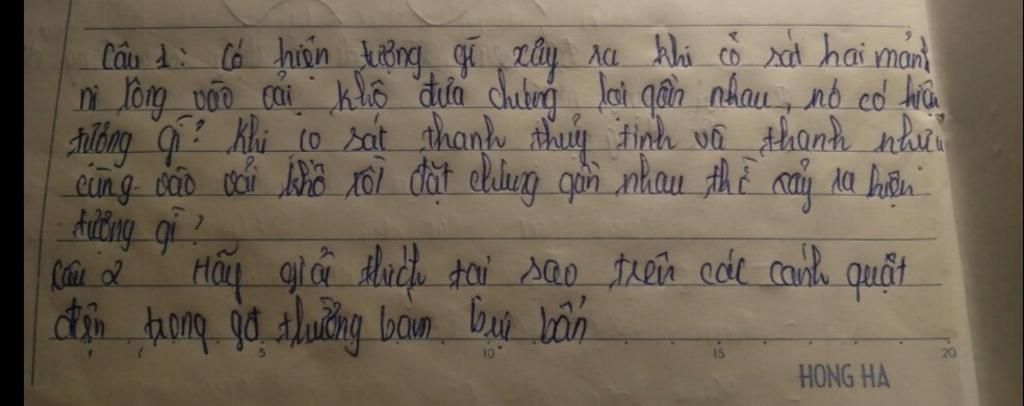 Câu 1: Có hiện tượng gì xảy ra khi cọ sát hai mảnh
ni lông vào vải khô đưa chúng lại gần nhau, nó có hiện
tượng gì? Khi cọ sát thanh thủy tinh và thanh nhựa
cùng vào vải khô rồi đặt chúng gần nhau thì xảy ra hiện
tượng gì?
câu 2 Hãy giải thích tại sao trên các cánh quạt
điện trong gđ thường bám bụi bẩn
5 10 15 20
HONG HA